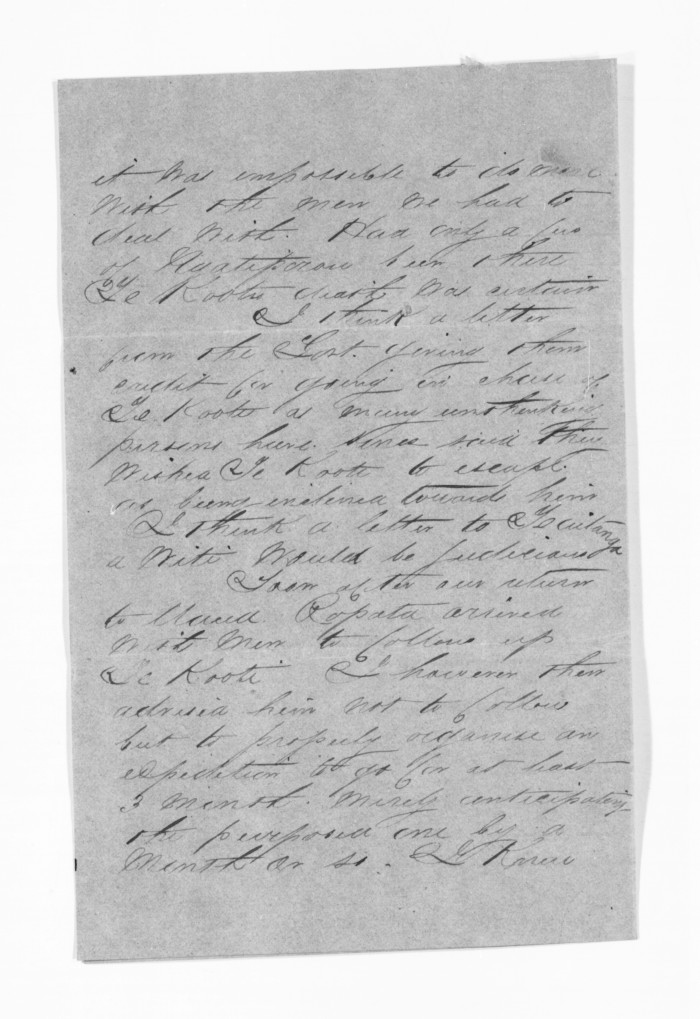 it was impossible to do more
with the men we had to
deal with. Had only a few
of Ngatiporou been there
Te Kootis death was certain
I think a letter
from the Govt. giving them
credit for going in chase of
Te Kooti as many unthinking
persons have since said they
wished Te Kooti to escape
as being inclined towards him
I think a letter to
a Witi would be judicious
Soon after our return
to Ropata arrived
with men to follow up
Te Kooti I however then
advised him not to follow
but to properly organise an
expedition to go for at least
3 month. merely anticipating
the purposed one by a
month or so. I knew